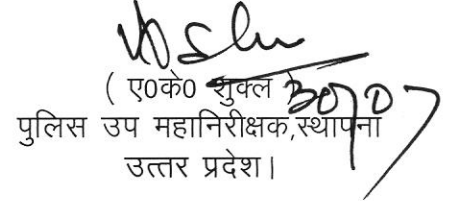 ( ए0के0 शुक्ल )
पुलिस उप महानिरीक्षक,स्थापना
उत्तर प्रदेश।